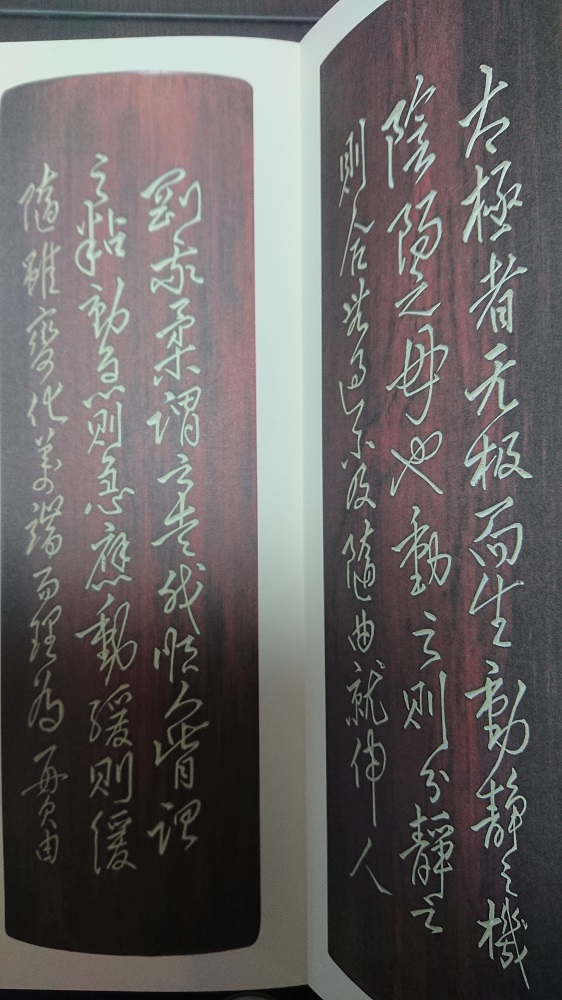 太極者无极而生動靜之機
陰陽之母也動之則分靜之
則合無過不及隨曲就伸人
剛我柔謂之走我順人背謂
之粘動急則急應動緩則緩
隨雖變化萬端而理為一貫由